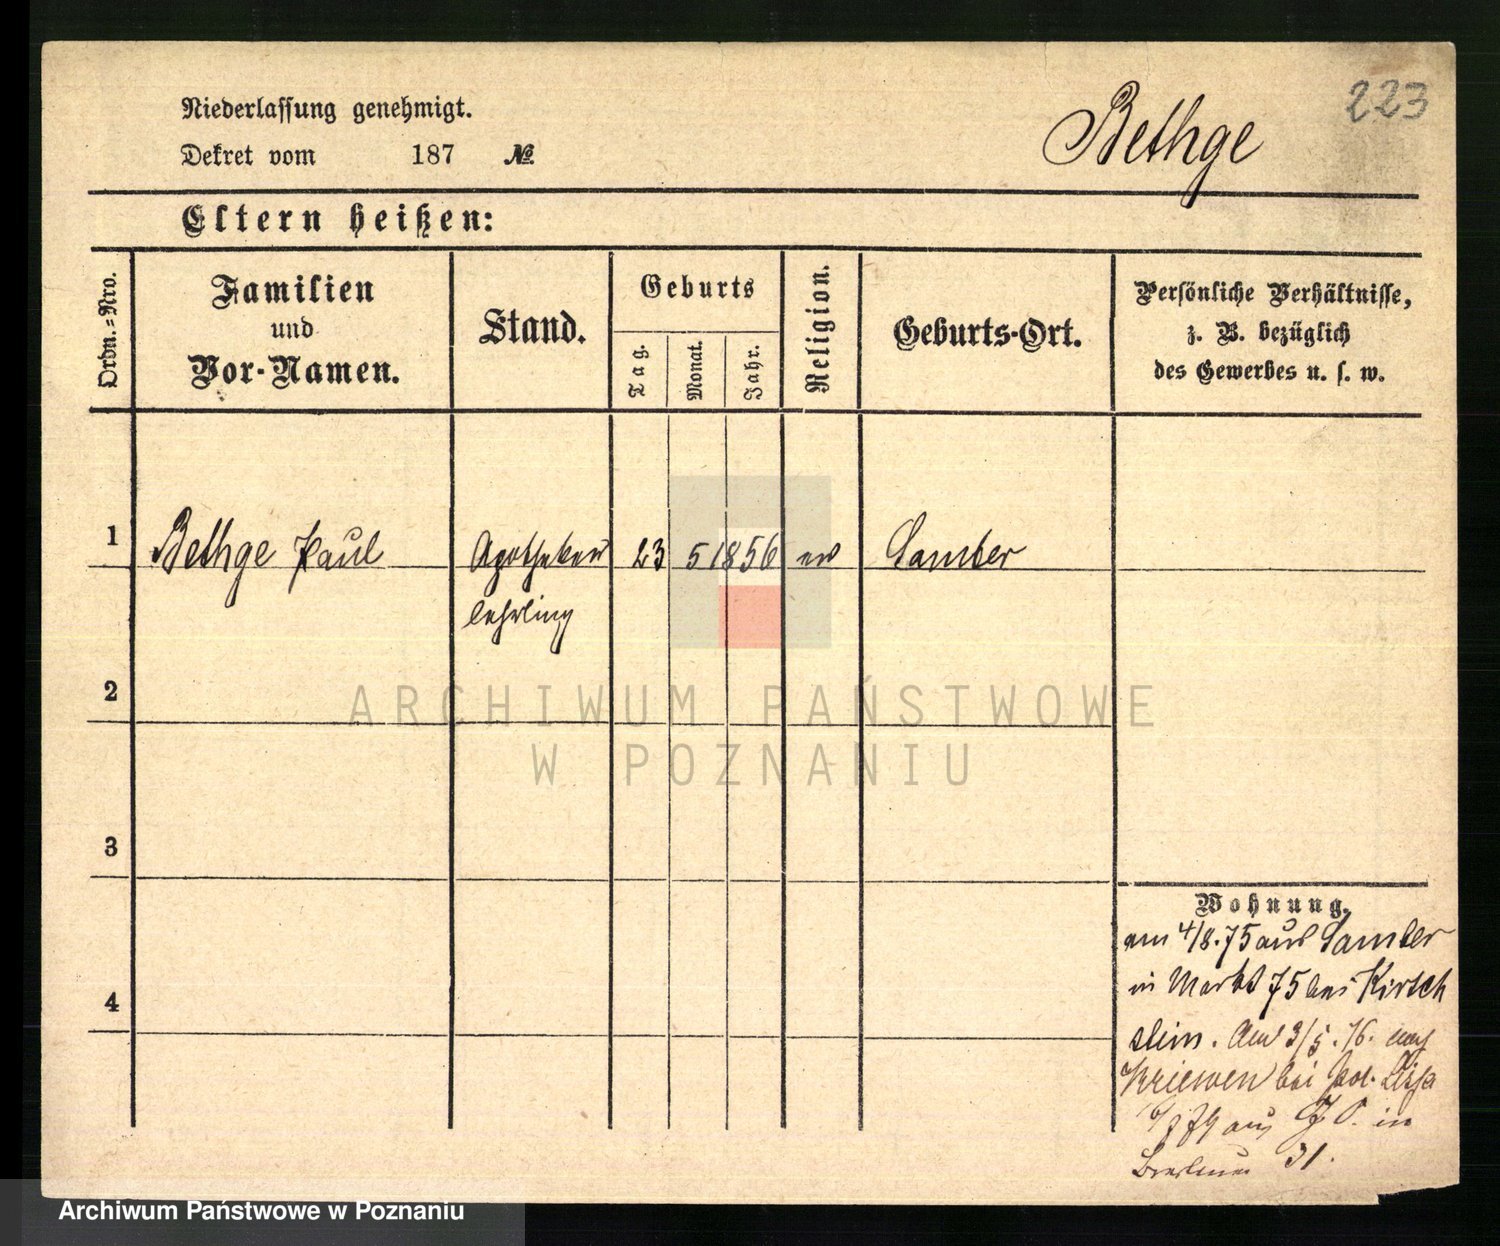 223
Niederlassung genehmigt.
Bethge
Dekret vom 187 №
Eltern heißen:
Ordn.=Nro.
Familien
und
Vor-Namen.
Stand.
Geburts
Tag.
Monat.
Jahr.
Religion.
Geburts-Ort.
Persönliche Verhältnisse,
z. B. bezüglich
des Gewerbes u. s. w.
1 Bethge Paul Apotheker 23 5 1856 ev Samter
lehrling
2
3
4
Wohnung.
am 4/8.75 aus Samter
in Markt 75 bei Kirsch
stein. Am 3/5.76. nach
Kriewen bei
aus J. O. in
31.
ARCHIWUM PAŃSTWOWE
W POZNANIU
Archiwum Państwowe w Poznaniu